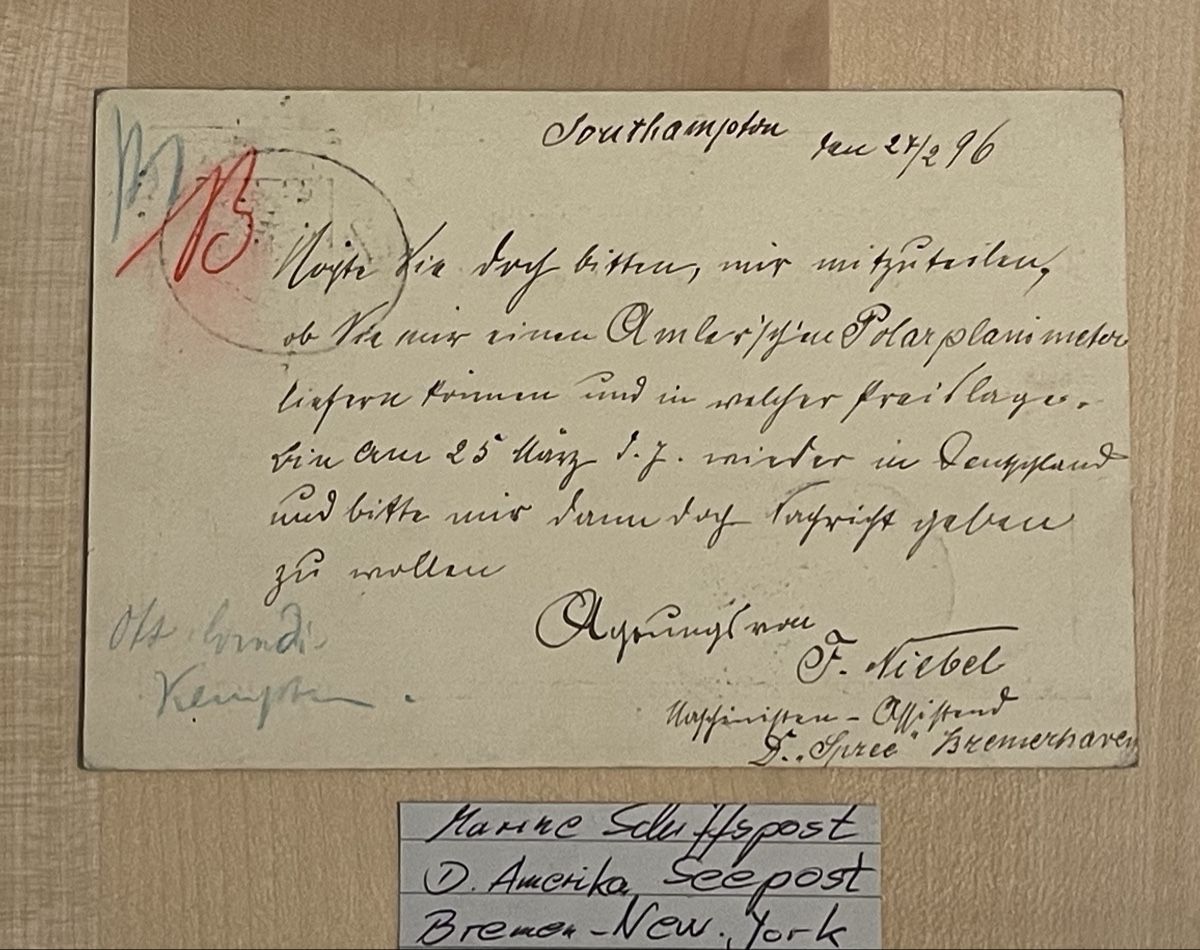 Southampton den 27/2 96
B
Möchte Sie doch bitten, mir mitzuteilen,
ob Sie mir einen Amsler'schen Polarplanimeter
liefern können und in welcher Preislage.
bin am 25 März d. J. wieder in Deutschland
und bitte mir dann doch Nachricht geben
zu wollen
Achtungsvoll
F. Niebel
Maschinisten - Assistend
D. „Spree" Bremerhaven
Ott
Kempten
Marine Schiffspost
D. Amerika Seepost
Bremen - New. York